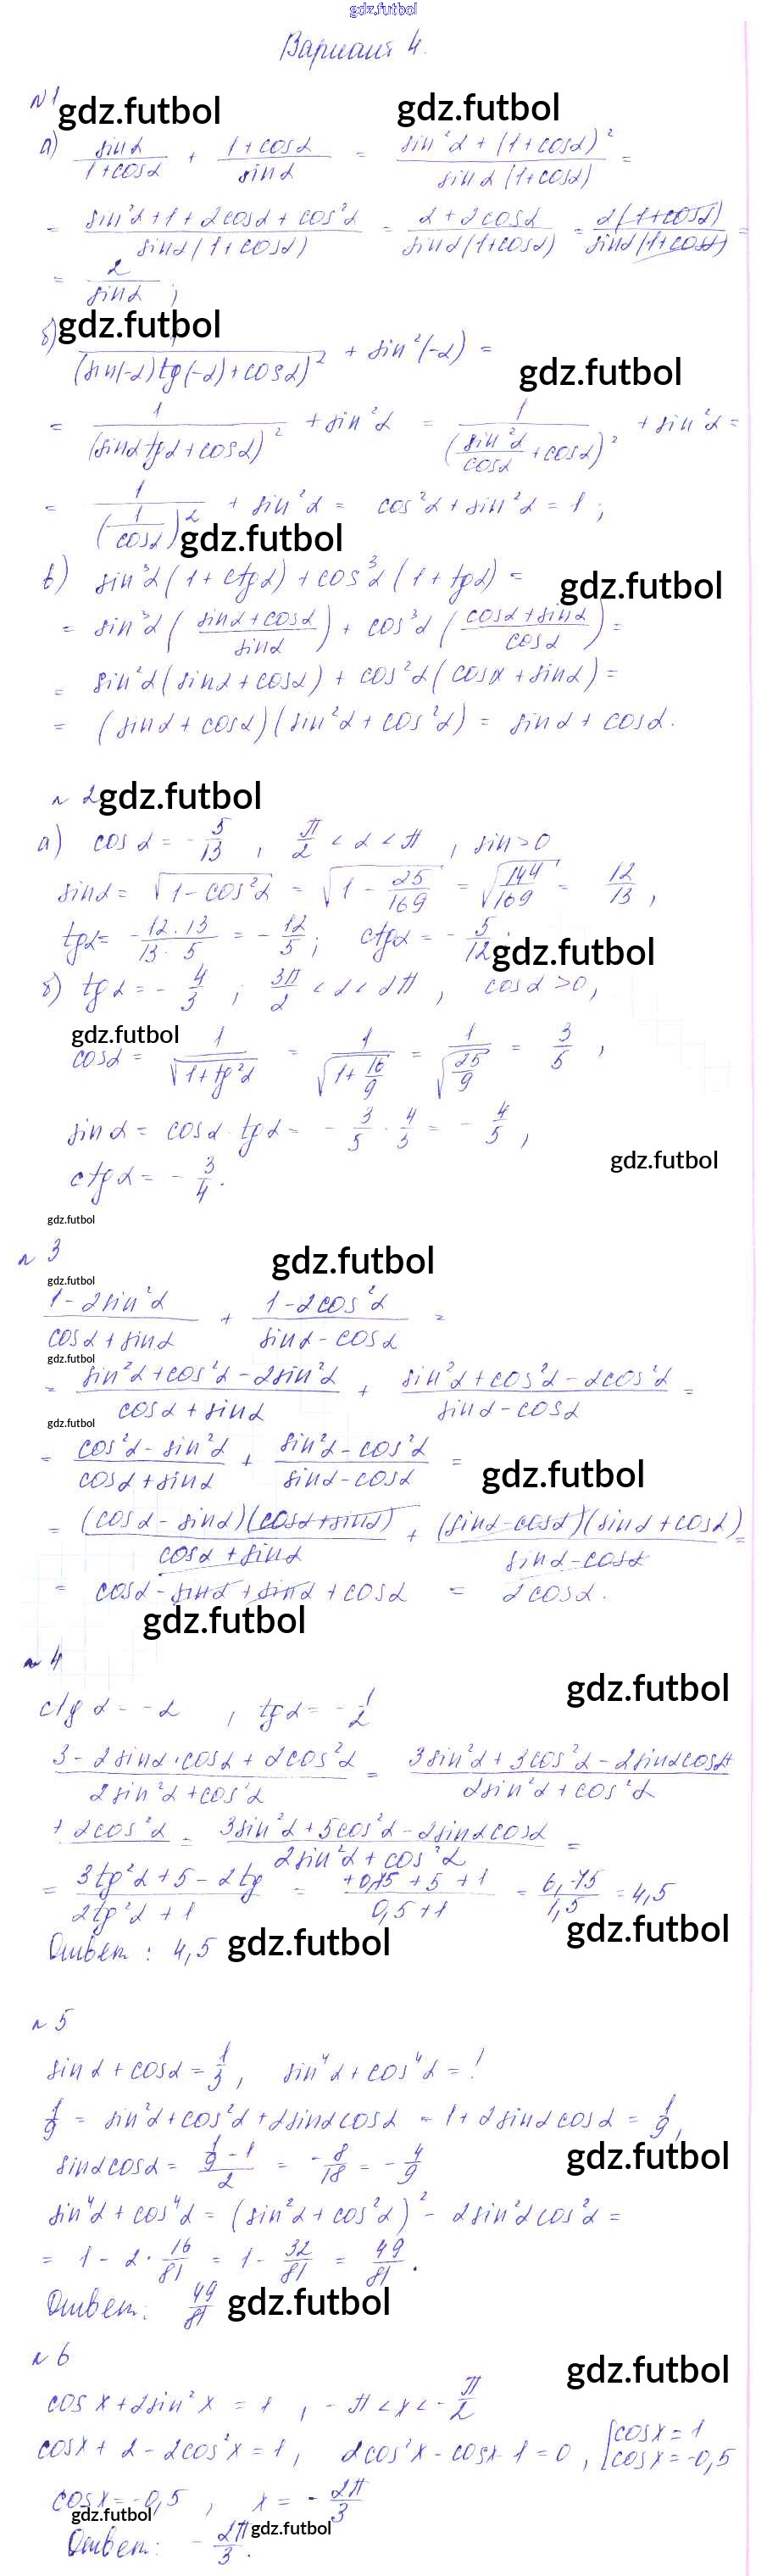 gdz.futbol
Вариант 4.
№1 gdz.futbol gdz.futbol
а) sinα/(1+cosα) + (1+cosα)/sinα = (sin²α + (1+cosα)²)/(sinα(1+cosα)) =
= (sin²α+1+2cosα+cos²α)/(sinα(1+cosα)) = (2+2cosα)/(sinα(1+cosα)) = 2(1+cosα)/(sinα(1+cosα)) =
= 2/sinα ;
б) gdz.futbol 1/(sin(-α)tg(-α)+cosα)² + sin²(-α) =
gdz.futbol
= 1/(sinα tgα+cosα)² + sin²α = 1/(sin²α/cosα + cosα)² + sin²α =
= 1/(1/cosα)² + sin²α = cos²α + sin²α = 1 ;
gdz.futbol
в) sin³α(1+ctgα) + cos³α(1+tgα) =
gdz.futbol
= sin³α((sinα+cosα)/sinα) + cos³α((cosα+sinα)/cosα) =
= sin²α(sinα+cosα) + cos²α(cosα+sinα) =
= (sinα+cosα)(sin²α+cos²α) = sinα + cosα.
№ 2 gdz.futbol
а) cosα = -5/13 , π/2 < α < π , sin>0
sinα = √(1-cos²α) = √(1-25/169) = √(144/169) = 12/13 ,
tgα = -(12·13)/(13·5) = -12/5 ; ctgα = -5/12 ;
gdz.futbol
б) tgα = -4/3 ; 3π/2 < α < 2π , cosα >0,
gdz.futbol
cosα = 1/√(1+tg²α) = 1/√(1+16/9) = 1/√(25/9) = 3/5 ,
sinα = cosα·tgα = -3/5 · 4/3 = -4/5 ,
gdz.futbol
ctgα = -3/4.
gdz.futbol
№ 3 gdz.futbol
gdz.futbol
(1-2sin²α)/(cosα+sinα) + (1-2cos²α)/(sinα-cosα) =
gdz.futbol
= (sin²α+cos²α-2sin²α)/(cosα+sinα) + (sin²α+cos²α-2cos²α)/(sinα-cosα) =
gdz.futbol
= (cos²α-sin²α)/(cosα+sinα) + (sin²α-cos²α)/(sinα-cosα) =
gdz.futbol
= (cosα-sinα)(cosα+sinα)/(cosα+sinα) + (sinα-cosα)(sinα+cosα)/(sinα-cosα) =
= cosα-sinα+sinα+cosα = 2cosα.
gdz.futbol
№ 4
gdz.futbol
ctgα = -2 , tgα = -1/2
(3-2sinα·cosα+2cos²α)/(2sin²α+cos²α) = (3sin²α+3cos²α-2sinαcosα+
+2cos²α)/(2sin²α+cos²α) = (3sin²α+5cos²α-2sinαcosα)/(2sin²α+cos²α) =
= (3tg²α+5-2tg)/(2tg²α+1) = (+0,75+5+1)/(0,5+1) = 6,75/1,5 = 4,5
gdz.futbol
Ответ: 4,5 gdz.futbol
№ 5
sinα+cosα = 1/3 , sin⁴α+cos⁴α = ?
1/9 = sin²α+cos²α+2sinαcosα = 1+2sinαcosα = 1/9,
gdz.futbol
sinαcosα = (1/9-1)/2 = -8/18 = -4/9
sin⁴α+cos⁴α = (sin²α+cos²α)² - 2sin²αcos²α =
= 1-2·16/81 = 1-32/81 = 49/81.
Ответ: 49/81 gdz.futbol
№ 6
gdz.futbol
cosx+2sin²x = 1 , -π<x<-π/2
cosx+2-2cos²x = 1, 2cos²x-cosx-1 = 0 , [cosx=1 cosx=-0,5
cosx=-0,5 , x = -2π/3
gdz.futbol
Ответ: -2π/3. gdz.futbol